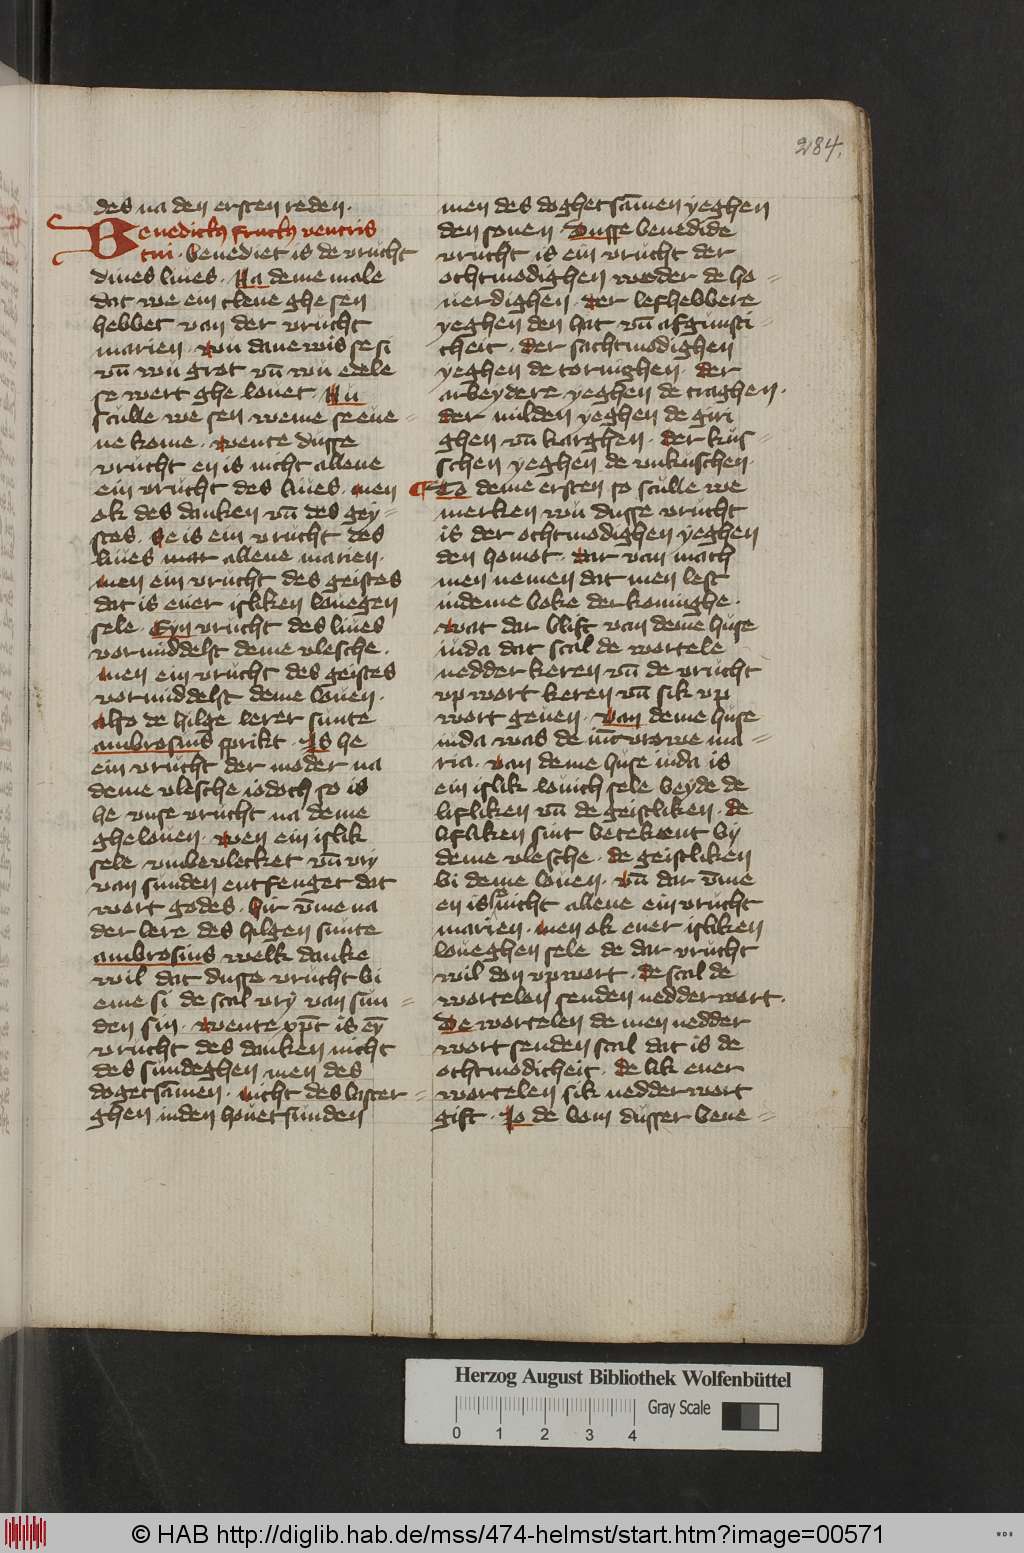 284.
des na den ersten reden·
Benedictus fructus ventris
tui· Benediet is de vrucht
dines liues· Na deme male
dat we ein cleine ghe sen
hebbet van der vrucht
marien· wu dane wis se si
vn̄ wu grot vn̄ wu edele
se wert ghe louet· Nu
sculle we sen weme se eue-
ne kome· wente dusse
vrucht en is nicht allene
ein vrucht des liues· men
ok des danken vn̄ des gey-
stes· Se is ein vrucht des
liues mar allene marien·
men ein vrucht des geistes
dat is ener isliken louegen
sele· Eyn vrucht des liues
vormiddelst deme vlesche·
men ein vrucht des geistes
vormiddelst deme louen·
also de hilge lerer sunte
ambrosius sprikt· Is he
ein vrucht der moder na
deme vlesche iodoch so is
he vnse vrucht na deme
ghelouen· wen ein islik
sele vmbevlecket vn̄ vry
van sunden entfenget dat
wort godes· hir v̄me na
der lere des hilgen sunte
ambrosius welk danke
wil dat dusse vrucht bi
eme si de scal vry van sun-
den sin· wente xp̄c is ey̅
vrucht des danken nicht
des sundeghen men des
dogetsāmen· nicht des laster-
ghen inden houetsunden
men des doghetsāmen yeghen
den souen· Dusse benedide
vrucht is ein vrucht der
ochtmodighen wedder de ho-
uerdighen· der lefhebbere
yeghen den hat vn̄ afgunsti-
cheit· der sachtmodighen
yeghen de tornighen· der
arbeydere yeghen de traghen·
der milden yeghen de giri
ghen vn̄ karghen· der kus-
schen yeghen de vnkuschen·
To deme ersten so sculle we
merken wu dusse vrucht
is der ochtmodighen yeghen
den homot· dar van mach
men nemen dat men lest
indeme boke der koninghe·
wat dar blift van deme huse
iuda dat scal de wortele
nedder keren vn̄ de vrucht
vp wort keren vn̄ sik vp
wort geuen· Van deme huse
iuda was de iūcvrowe ma-
ria· van deme huse iuda is
ein islik louich sele beyde de
lifliken vn̄ de geistliken· de
lifliken sint betekent by
deme vlesche· de geistliken
bi deme louen· vn̄ dar v̄me
en is so nicht allene ein vrucht
marien· men ok ener isliken
loueghen sele de dar vrucht
wil don vpwort· de scal de
wortelen senden nedder wort·
De wortelen de men nedder
wort senden scal dat is de
ochtmodicheit· de lik ener
wortelen sik nedder wort
gift· Jo de bom dusser bene-
Herzog August Bibliothek Wolfenbüttel
Gray Scale
0 1 2 3 4
© HAB http://diglib.hab.de/mss/474-helmst/start.htm?image=00571